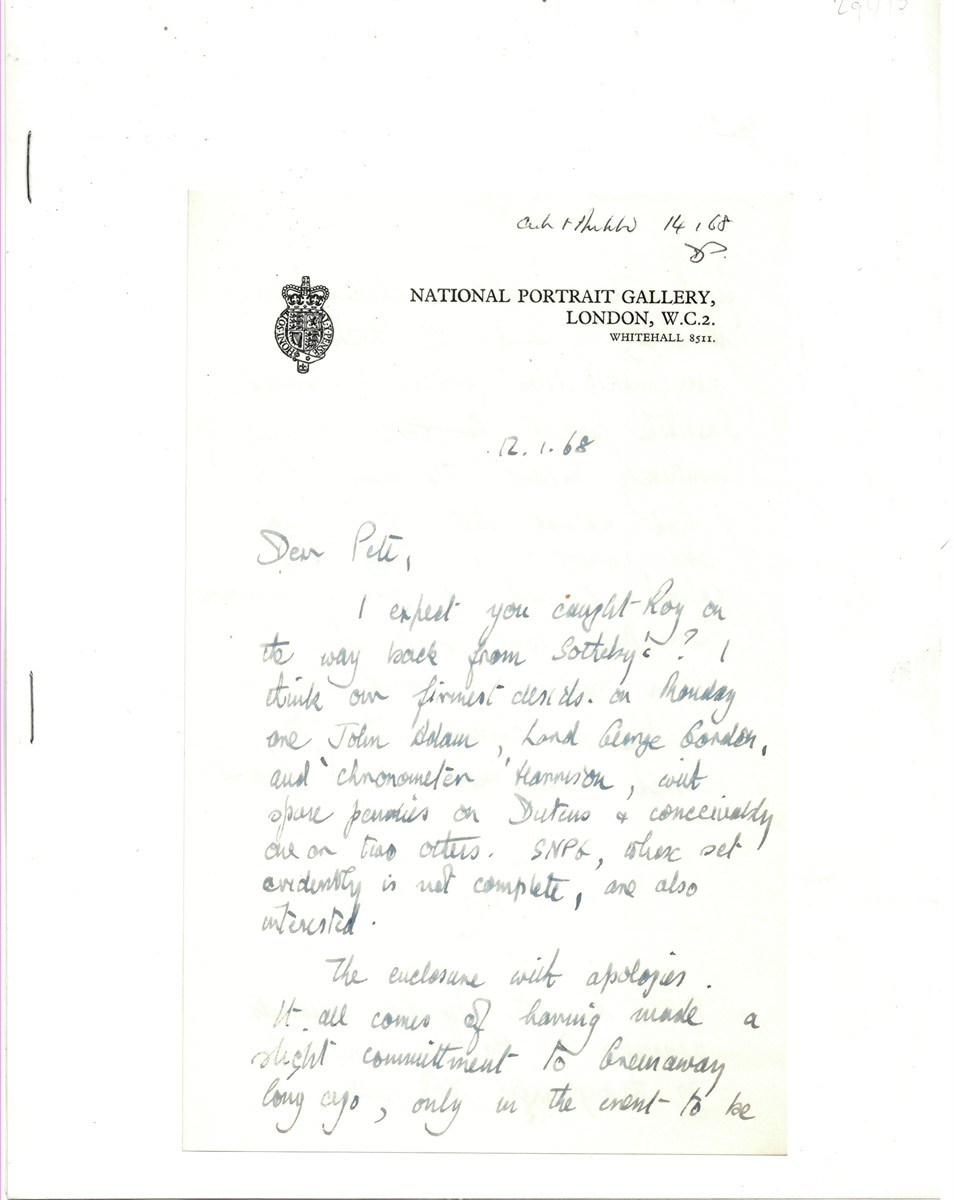 14.1.68
NATIONAL PORTRAIT GALLERY,
LONDON, W.C.2.
WHITEHALL 8511.
12.1.68
Dear Pete,
I expect you caught Roy on
the way back from Sotheby's? I
think our firmest desids. on Monday
are John Adam, Lord George Gordon,
and 'chronometer' Harrison, with
spare pennies on Dutens & conceivably
one or two others. SNPG, whose set
evidently is not complete, are also
interested.
The enclosure with apologies.
It all comes of having made a
slight committment to Greenaway
long ago, only in the event to be